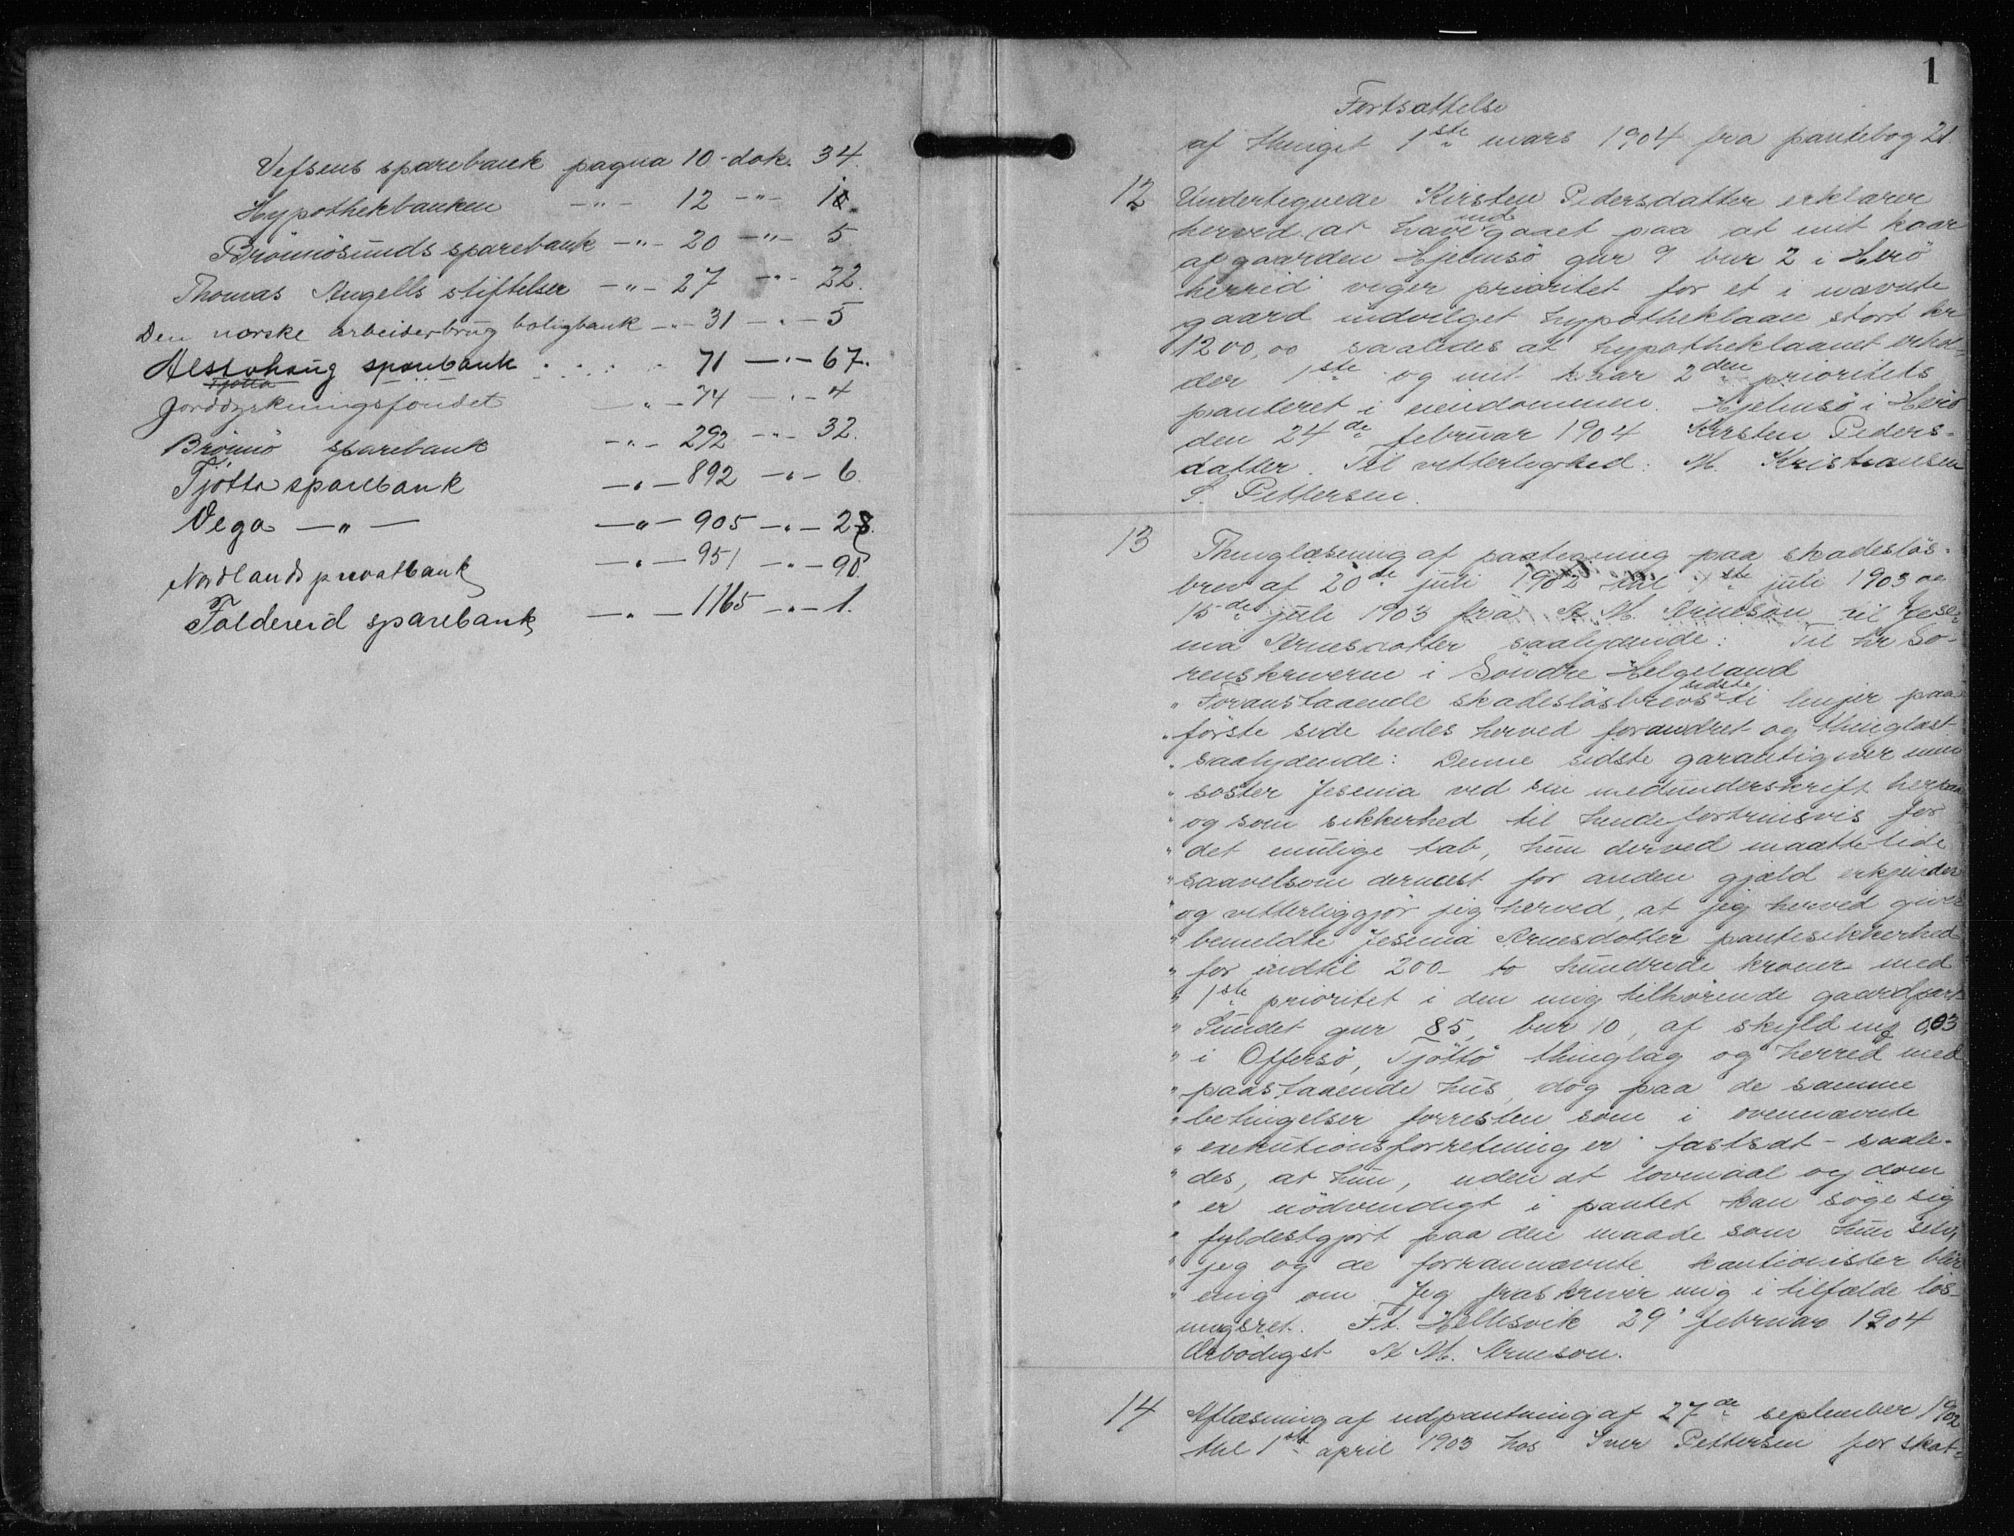 Vefsens sparebank pagna 10 - dok. 34.
Hypothekbanken -"- 12 -"- 10.
Brönnösunds sparebank -"- 20 -"- 5
Thomas Angells stiftelser -"- 27 -"- 22.
Den norske arbeiderbrug boligbank -"- 31 -"- 5
Alstahaug sparebank 71 -"- 67.
Tjötta
Jorddyrkningsfondet -"- 74 -"- 4
Brönnö sparebank -"- 292 -"- 32.
Tjötta sparebank -"- 892 -"- 6.
Vega -"- -"- 905 -"- 28.
Nordlands privatbank -"- 951 -"- 90
Foldereid sparebank -"- 1165 -"- 1.
1
Fortsættelse
af thinget 1ste mars 1904 fra pantebog 21.
12 Undertegnede Kirsten Pedersdatter erklærer
herved at have indgaaet paa at mit kaar
af gaarden Hjelmsö gnr 9 bnr 2 i Herö
herred viger prioritet for et i nævnte
gaard indvilget hypotheklaan stort kr
1200,00 saaledes at hypotheklaanet erhol-
der 1ste og mit kaar 2den prioritets
panteret i eiendommen. Hjelmsö i Herö
den 24de februar 1904 Kirsten Peders-
datter. Til vitterlighed: M. Kristiansen
S. Pettersen.
13 Thinglæsning af paategning paa skadeslös-
brev af 20de juli 1902 thl 1ste juli 1903 ae
15de juli 1903 fra A. M. Arneson til Jese-
nia Arnesdatter saalydende: Til hr So-
renskriveren i Söndre Helgeland
" Foranstaaende skadeslösbrevs sidste ti linjer paa
" förste side bedes herved forandret og thinglæst
" saalydende: Denne sidste garantigiver min
" söster Jesenia ved sin medunderskrift herpaa
" og som sikkerhed til hende fortrinsvis for
" det mulige tab, hun derved maatte lide
" saavelsom dernæst for anden gjæld erkjender
" og vitterliggjör jeg herved, at jeg herved giver
" bemeldte Jesenia Arnesdatter pantesikkerhed
" for indtil 200 - to hundrede kroner med
" 1ste prioritet i den mig tilhörende gaardpart
" Sundet gnr 85, bnr 10, af skyld mk 0,03
" i Offersö, Tjöttö thinglag og herred med
" paastaaende hus, dog paa de samme
" betingelser forresten som i ovennævnte
" executionsforretning er fastsat - saale-
" des, at hun, uden at lovmaal og dom
" er nödvendigt i pantet kan söge sig
" fyldestgjort paa den maade som hun selv,
" jeg og de forannævnte kautionister blir
" enig om. Jeg fraskriver mig i tilfælde lös-
ningsret. F.t. Hellesvik 29 februar 1904
Ærbödigst A. M. Arneson.
14 Aflæsning af udpantning af 27de september 1902
thl 1ste april 1903 hos Iver Pettersen for skat-